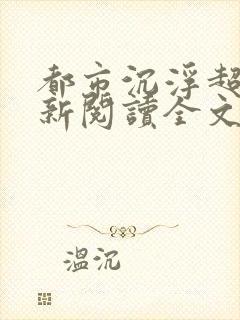 都市沉浮超
新閱讀全文
溫沉